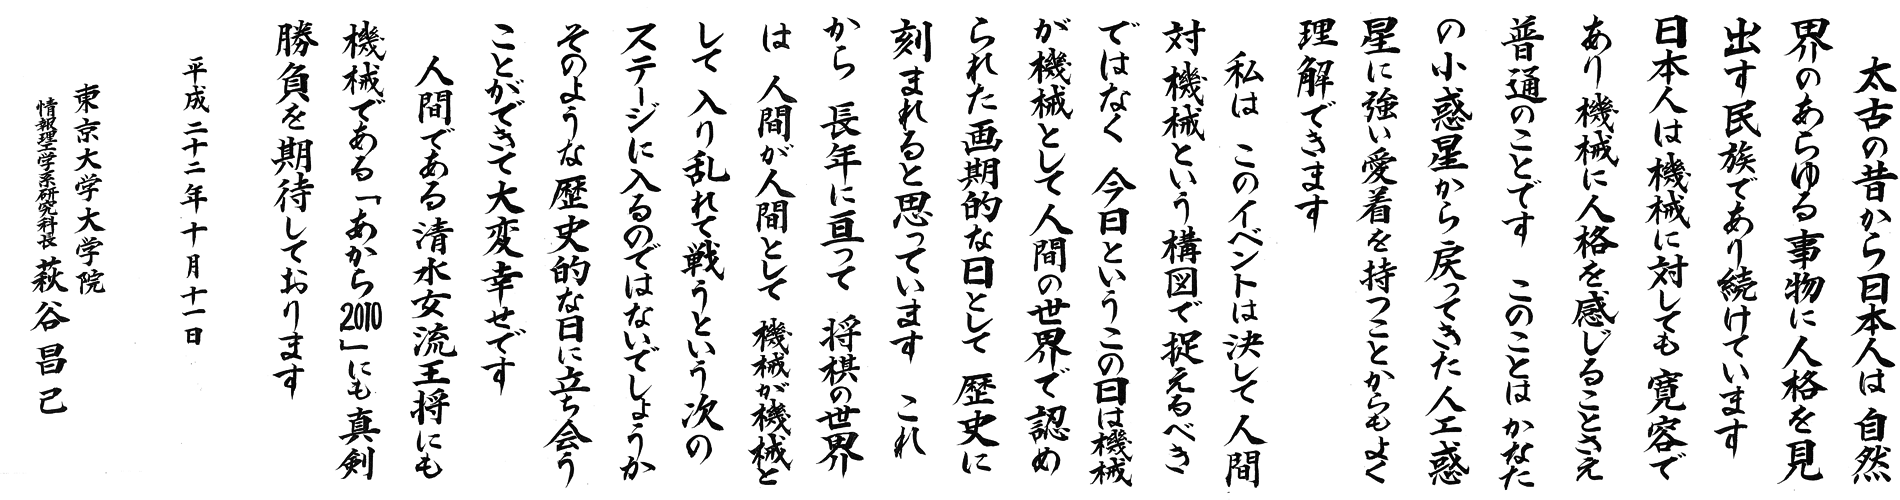 太古の昔から日本人は 自然
界のあらゆる事物に人格を見
出す民族であり続けています
日本人は機械に対しても 寛容で
あり 機械に人格を感じることさえ
普通のことです このことは かなた
の小惑星から戻ってきた人工惑
星に強い愛着を持つことからもよく
理解できます
私は このイベントは決して人間
対機械という構図で捉えるべき
ではなく 今日というこの日は機械
が機械として人間の世界で認め
られた画期的な日として 歴史に
刻まれると思っています これ
から 長年に亘って 将棋の世界
は 人間が人間として 機械が機械と
して 入り乱れて戦うという次の
ステージに入るのではないでしょうか
そのような歴史的な日に立ち会う
ことができて大変幸せです
人間である清水女流王将にも
機械である「あから2010」にも真剣
勝負を期待しております
平成二十二年十月十一日
東京大学大学院
情報理工学系研究科長 萩谷昌己